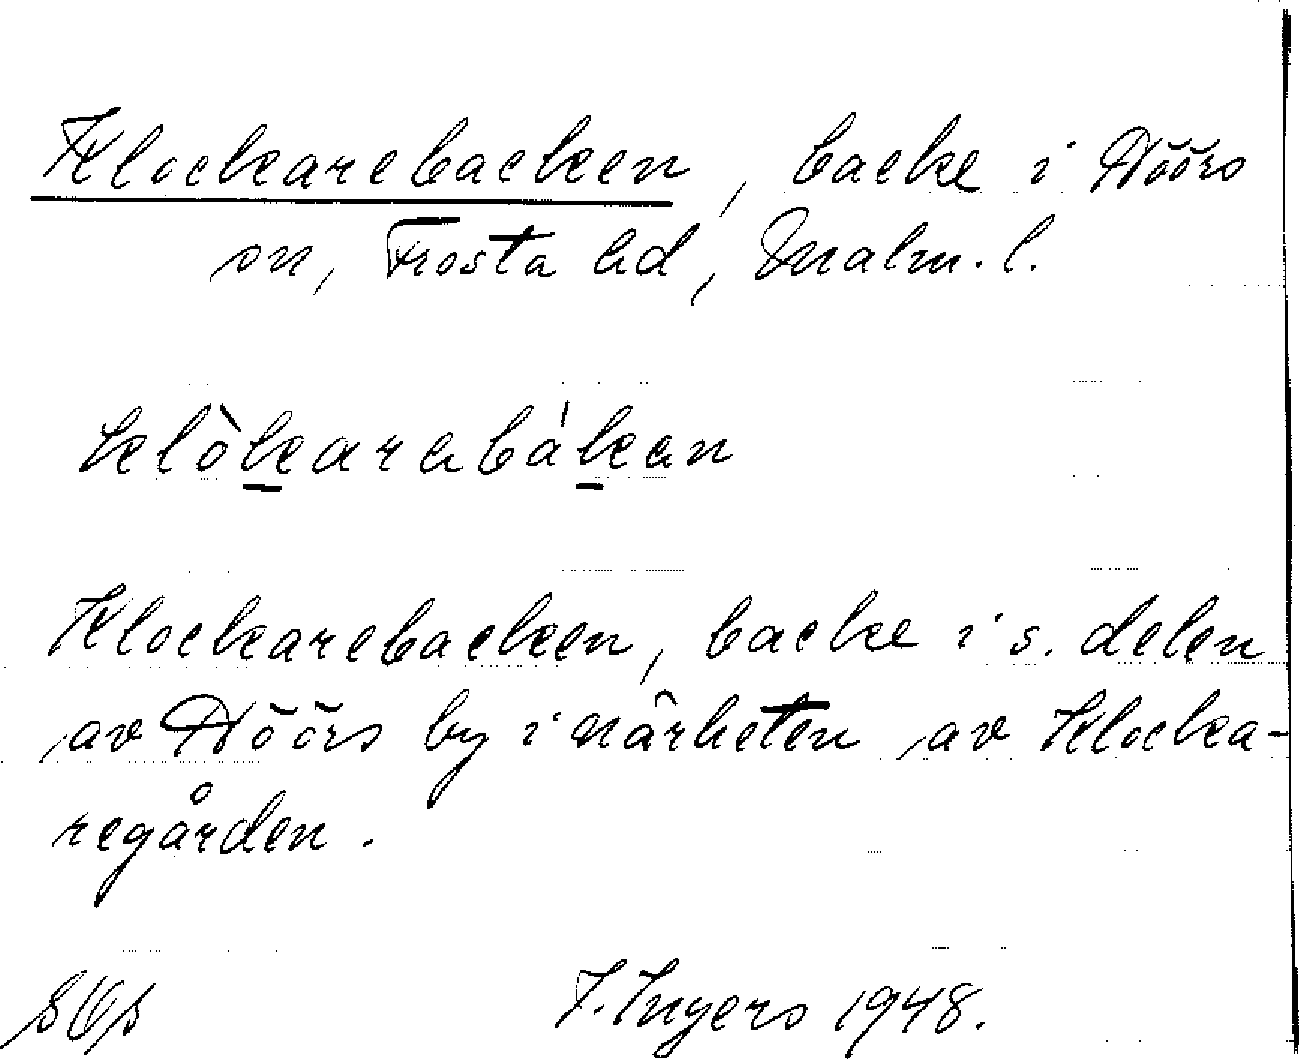 Klockarebacken, backe i Höörs
sn, Frosta hd, Malm. l.
klòkarabákan
Klockarebacken, backe i s. delen
av Höörs by i närheten av Klocka-
regården.
I. Ingers 1948.